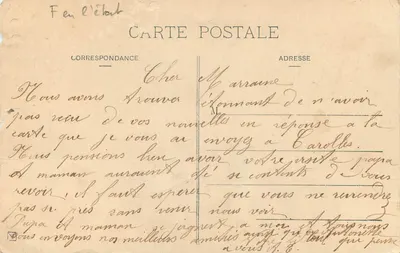 F en l'état
CARTE POSTALE
CORRESPONDANCE
ADRESSE
Cher Marraine
Nous avons trouver étonnant de n'avoir
pas reçu de vos nouvelles en réponse a la
carte que je vous ai envoyé a Carolles.
Nous pensions bien avoir votre visite papa
et maman auraient été si contents de vous
revoir, il faut espérer que vous ne reviendrez
pas si près sans venir nous voir
Papa et maman se joignent a moi et tous nous
vous envoyons nos meilleures amitiés ainsi que
a vous